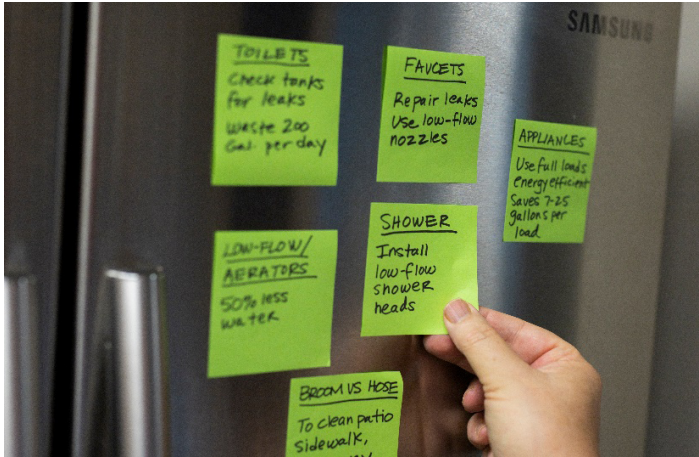 SAMSUNG
TOILETS
Check tanks
for leaks
Waste 200
Gal. per day
FAUCETS
Repair leaks
Use low-flow
nozzles
APPLIANCES
Use full loads
energy efficient
Saves 7-25
gallons per
load
LOW-FLOW/
AERATORS
50% less
water
SHOWER
Install
low-flow
shower
heads
BROOM VS HOSE
To clean patio
sidewalk,